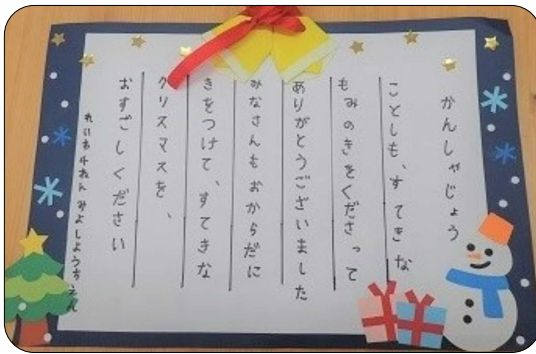 かんしゃじょう
ことしも、すてきな
もみのきをくださって
ありがとうございました
みなさんもおからだに
きをつけて、すてきな
クリスマスを、
おすごしください
れいわ4ねん みよしようちえん